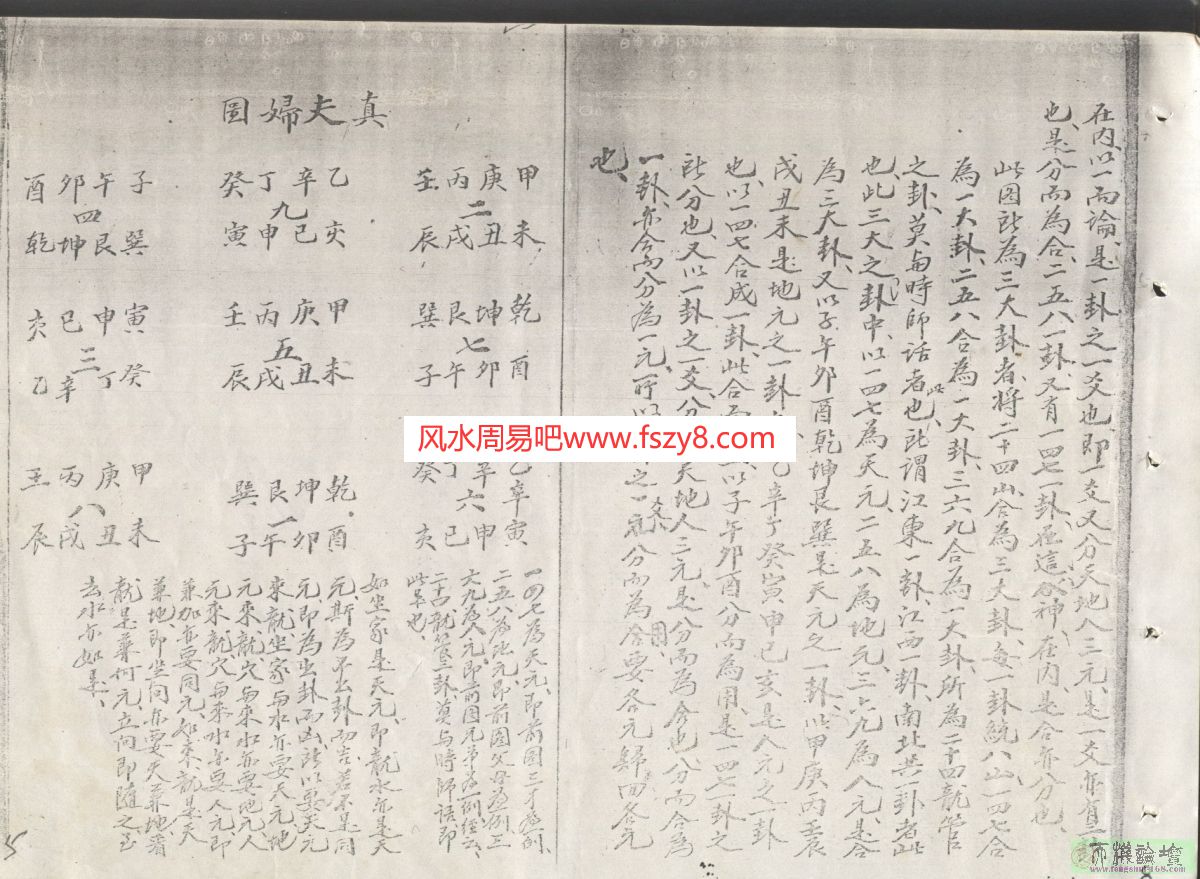 在内以一而論是一卦之一爻也即一爻又分天地人三元是一爻亦有三
也是分而為合二五八一卦又有一四七一卦在這谷神在内是合亦分也
此图所為三大卦者将二十四山合為三大卦每一卦統八山一四七合
為一大卦二五八合為一大卦三六九合為一大卦所為二十四龍管
之卦莫与時師話者也此謂江東一卦江西一卦南北共一卦者此
也此三大之卦中以一四七為天元二五八為地元三六九為人元是合
為三大卦又以子午卯酉乾坤艮巽是天元之一卦以甲庚丙壬辰
戌丑未是地元之一卦 乙辛丁癸寅申巳亥是人元之一卦
也以一四七合成一卦此合而 以子午卯酉分而為用是一四七一卦之
所分也又以一卦之一爻分 天地人三元是分而為合也分而合為
一卦亦合而分為一元所以 之一爻分而為合用要各元歸回各元
也
真夫婦圖
甲庚丙壬
二
未丑戌辰
乙辛丁癸
九
亥巳申寅
子午卯酉
四
巽艮坤乾
乾坤艮巽
七
酉卯午子
甲庚丙壬
五
未丑戌辰
寅申巳亥
三
癸丁辛乙
乙辛丁癸
六
寅申巳亥
乾坤艮巽
一
酉卯午子
甲庚丙壬
八
未丑戌辰
一四七為天元即前图三才為例
二五八為地元即前图父母為例三
六九為人元即前图兄弟為一例經云
二十四龍管三卦莫与時師話即
此是也
如坐家是天元即龍水亦是天
元斯為不出卦而吉若不是同
元即為出卦而凶所以要天元
來龍坐家与水亦要天元地
元來龍穴与來水亦要地元人
元來龍穴与來水亦要人元即
兼加亦要同元如來龍是天
兼地即坐向亦要天兼地看
龍是兼何元立向即隨之至
去水亦如是
5
风水周易吧www.fszy8.com
www.fengshui-168.com